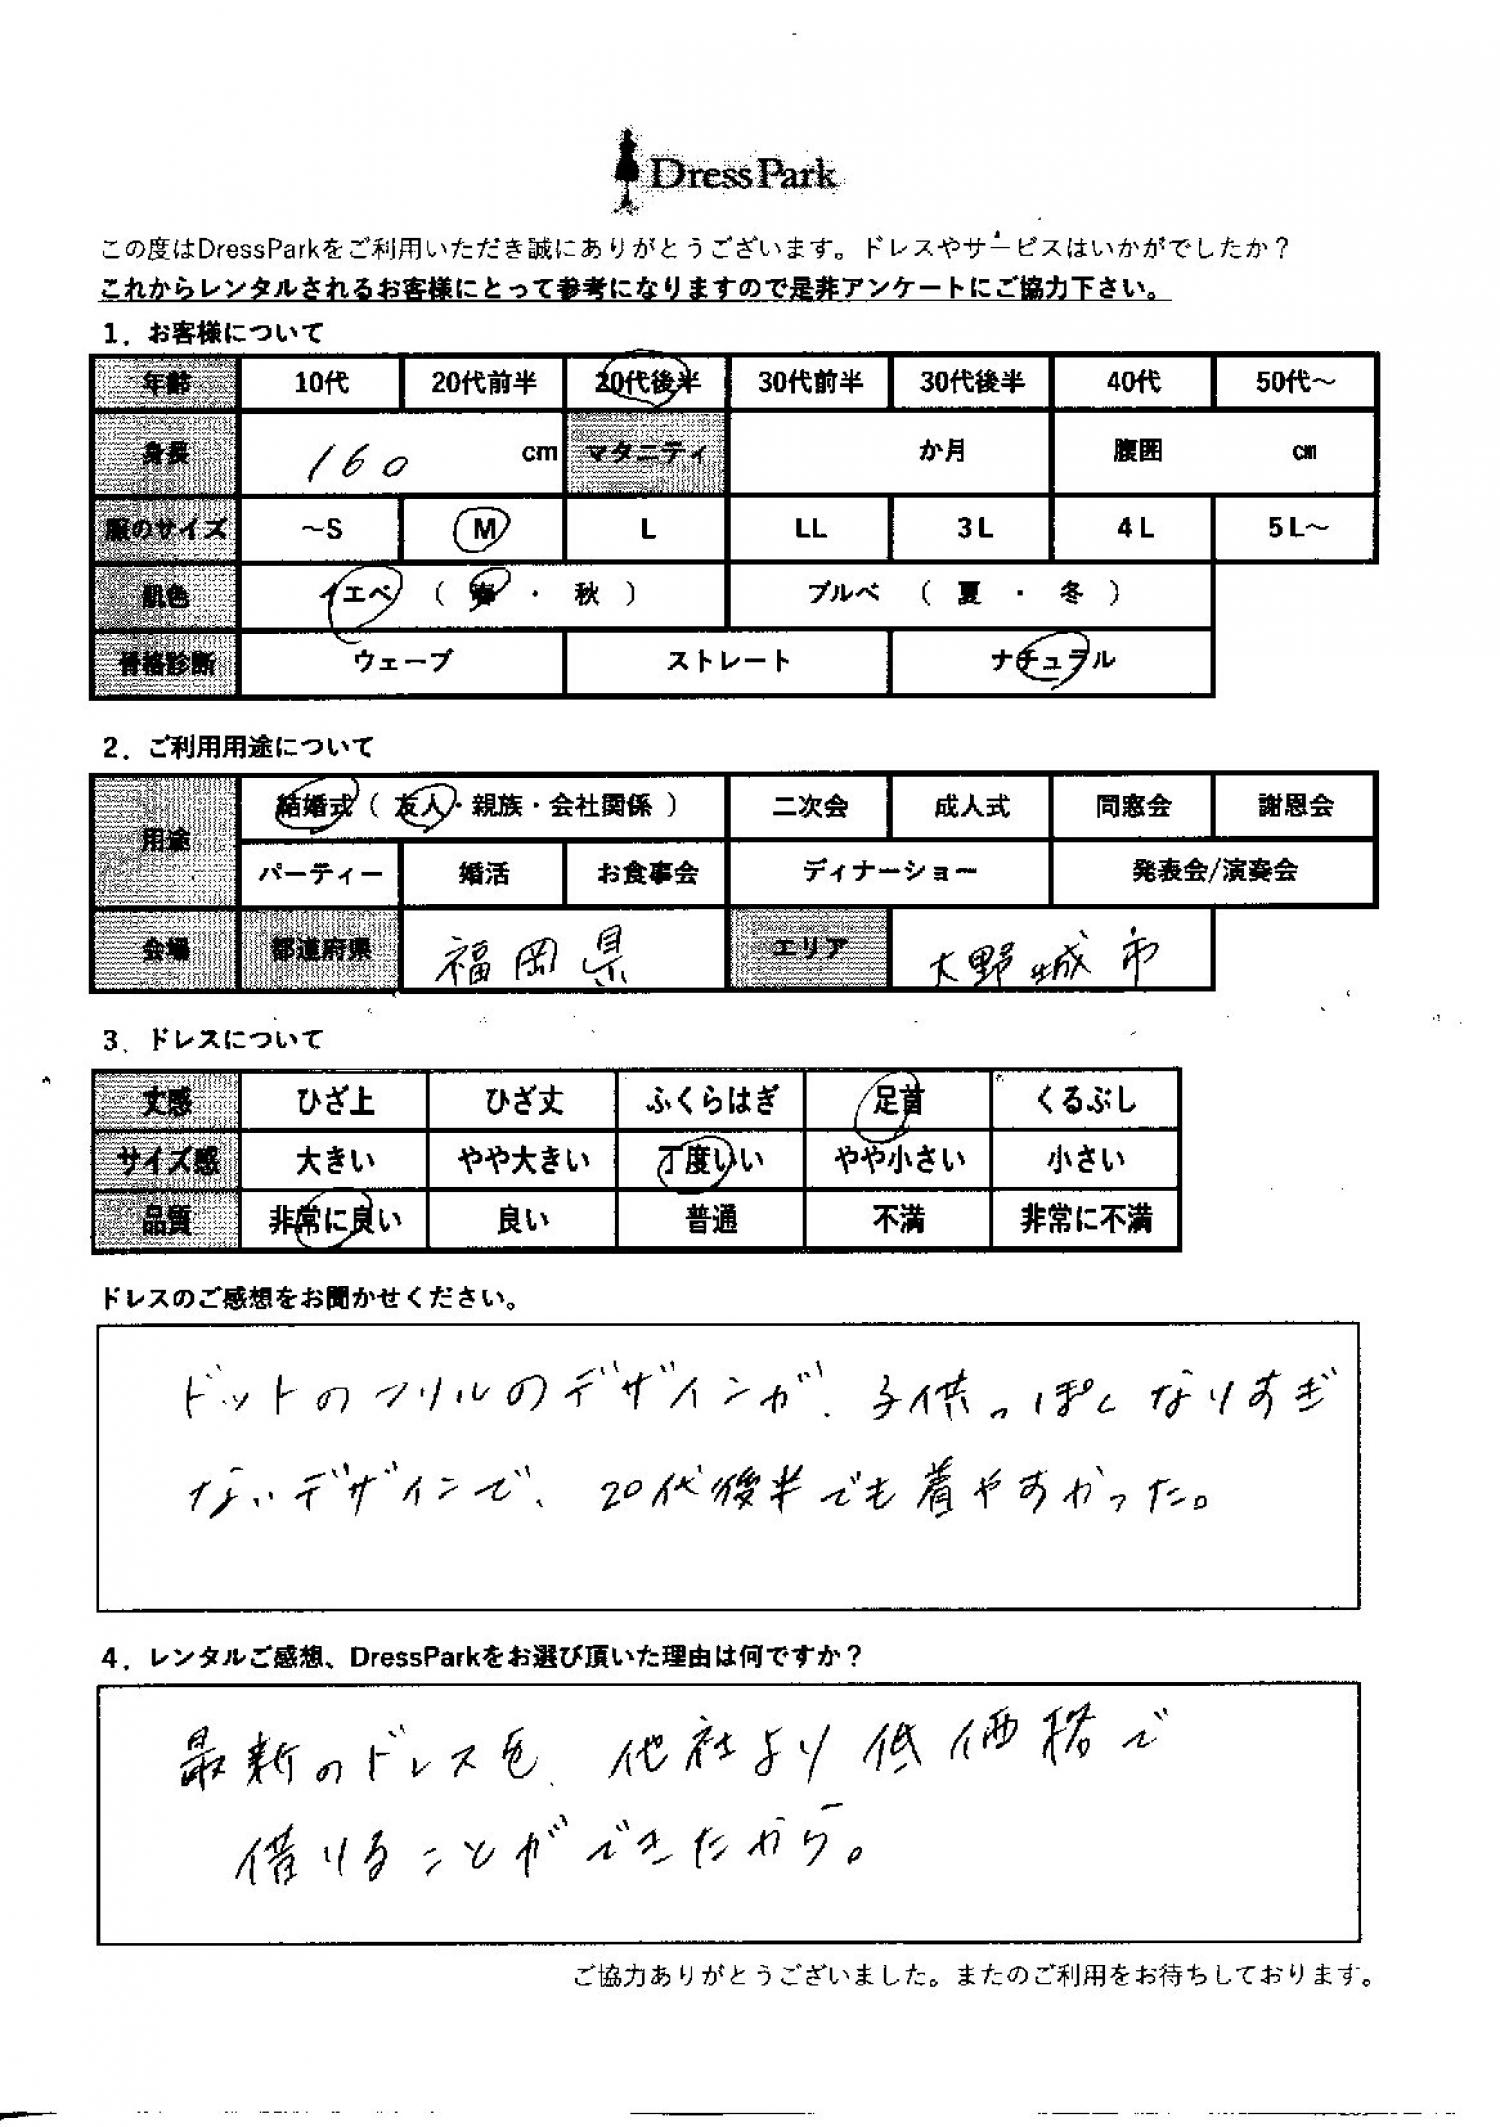 DressPark
この度はDressParkをご利用いただき誠にありがとうございます。ドレスやサービスはいかがでしたか？
これからレンタルされるお客様にとって参考になりますので是非アンケートにご協力下さい。
1．お客様について
年齢 10代 20代前半 20代後半 30代前半 30代後半 40代 50代～
身長 160 cm マタニティ か月 腹囲 cm
服のサイズ ～S M L LL 3L 4L 5L～
肌色 イエベ （ 春 ・ 秋 ） ブルベ （ 夏 ・ 冬 ）
骨格診断 ウェーブ ストレート ナチュラル
2．ご利用用途について
用途 結婚式（ 友人・親族・会社関係 ） 二次会 成人式 同窓会 謝恩会
パーティー 婚活 お食事会 ディナーショー 発表会/演奏会
会場 都道府県 福岡県 エリア 大野城市
3．ドレスについて
丈感 ひざ上 ひざ丈 ふくらはぎ 足首 くるぶし
サイズ感 大きい やや大きい 丁度いい やや小さい 小さい
品質 非常に良い 良い 普通 不満 非常に不満
ドレスのご感想をお聞かせください。
ドットのフリルのデザインが、子供っぽくなりすぎ
ないデザインで、20代後半でも着やすかった。
4．レンタルご感想、DressParkをお選び頂いた理由は何ですか？
最新のドレスを、他社より低価格で
借りることができたから。
ご協力ありがとうございました。またのご利用をお待ちしております。